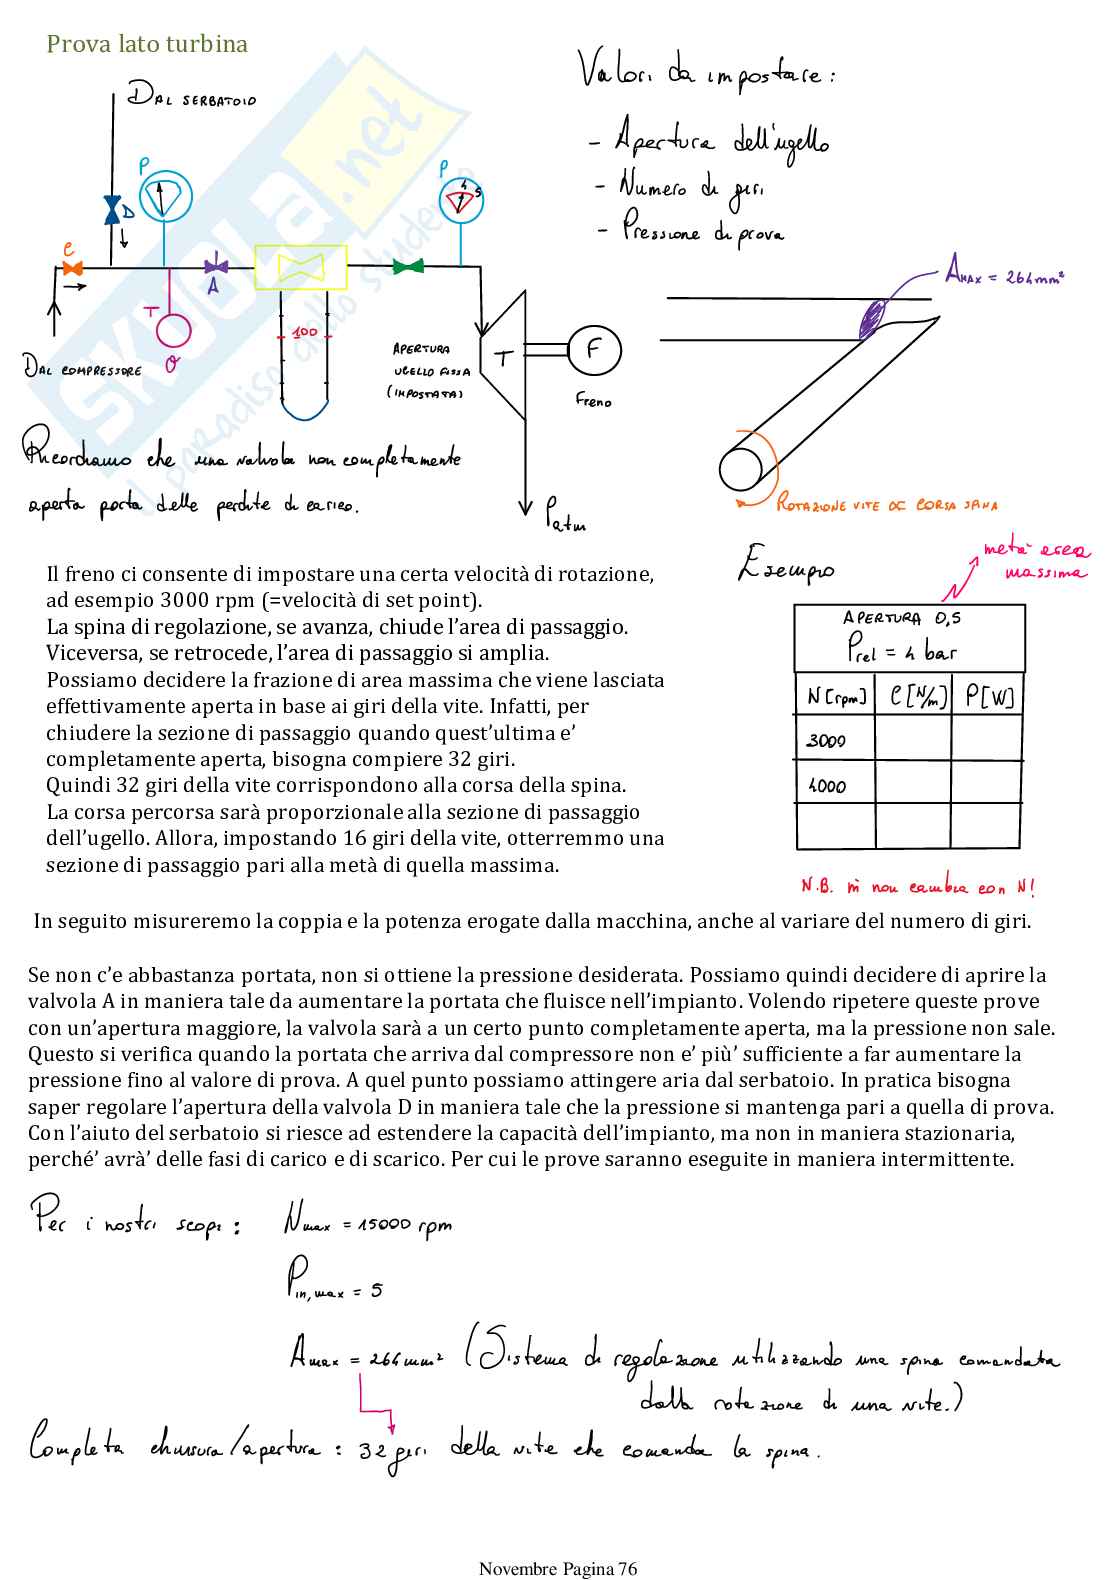 Prova lato turbina
DAL SERBATOIO
P
D
C
A
T
DAL COMPRESSORE
100
P
4
5
APERTURA
UGELLO FISSA
(IMPOSTATA)
T
F
Freno
Patm
Valori da impostare:
- Apertura dell'ugello
- Numero di giri
- Pressione di prova
AMAX = 264mm²
ROTAZIONE VITE DC CORSA SPINA
Ricordiamo che una valvola non completamente
aperta porta delle perdite di carico.
Il freno ci consente di impostare una certa velocità di rotazione,
ad esempio 3000 rpm (=velocità di set point).
La spina di regolazione, se avanza, chiude l'area di passaggio.
Viceversa, se retrocede, l'area di passaggio si amplia.
Possiamo decidere la frazione di area massima che viene lasciata
effettivamente aperta in base ai giri della vite. Infatti, per
chiudere la sezione di passaggio quando quest'ultima e'
completamente aperta, bisogna compiere 32 giri.
Quindi 32 giri della vite corrispondono alla corsa della spina.
La corsa percorsa sarà proporzionale alla sezione di passaggio
dell'ugello. Allora, impostando 16 giri della vite, otterremmo una
sezione di passaggio pari alla metà di quella massima.
Esempio
metà area
massima
APERTURA 0,5
Prel = 4 bar
N [rpm] C [N/m] P [W]
3000
4000
N.B. ṁ non cambia con N!
In seguito misureremo la coppia e la potenza erogate dalla macchina, anche al variare del numero di giri.
Se non c'e abbastanza portata, non si ottiene la pressione desiderata. Possiamo quindi decidere di aprire la
valvola A in maniera tale da aumentare la portata che fluisce nell'impianto. Volendo ripetere queste prove
con un'apertura maggiore, la valvola sarà a un certo punto completamente aperta, ma la pressione non sale.
Questo si verifica quando la portata che arriva dal compressore non e' più' sufficiente a far aumentare la
pressione fino al valore di prova. A quel punto possiamo attingere aria dal serbatoio. In pratica bisogna
saper regolare l'apertura della valvola D in maniera tale che la pressione si mantenga pari a quella di prova.
Con l'aiuto del serbatoio si riesce ad estendere la capacità dell'impianto, ma non in maniera stazionaria,
perché' avrà' delle fasi di carico e di scarico. Per cui le prove saranno eseguite in maniera intermittente.
Per i nostri scopi: Nmax = 15000 rpm
Pin,max = 5
Amax = 264mm² (Sistema di regolazione utilizzando una spina comandata
dalla rotazione di una vite.)
Completa chiusura/apertura: 32 giri della vite che comanda la spina.
Novembre Pagina 76
SKUOLA.net
il paradiso dello studente